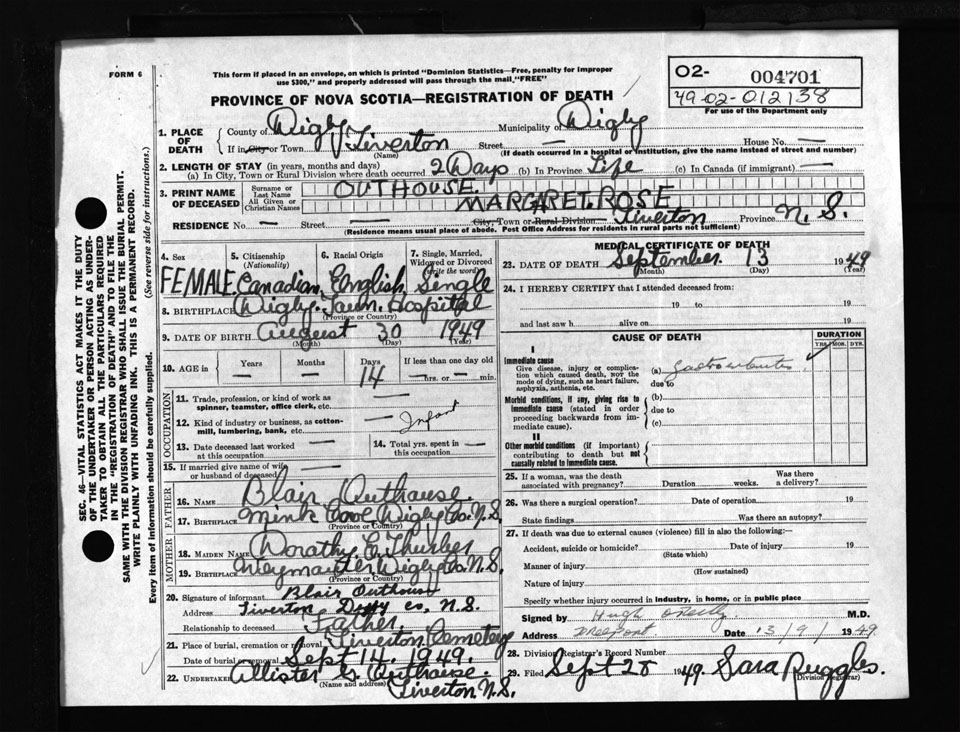 FORM 6
This form if placed in an envelope, on which is printed "Dominion Statistics—Free, penalty for improper
use $300," and properly addressed will pass through the mail "FREE"
O2- 004701
49-02-012138
For use of the Department only
PROVINCE OF NOVA SCOTIA—REGISTRATION OF DEATH
1. PLACE OF DEATH
County of Digby Municipality of Digby
If in City or Town Tiverton Street — House No. —
(Name) (If death occurred in a hospital or institution, give the name instead of street and number)
2. LENGTH OF STAY (in years, months and days)
(a) In City, Town or Rural Division where death occurred 2 Days (b) In Province Life (c) In Canada (if immigrant) —
3. PRINT NAME OF DECEASED
Surname or Last Name OUTHOUSE
All Given or Christian Names MARGARET ROSE
RESIDENCE No. — Street — City, Town or Rural Division Tiverton Province N. S.
(Residence means usual place of abode. Post Office Address for residents in rural parts not sufficient)
SEC. 46—VITAL STATISTICS ACT MAKES IT THE DUTY
OF THE UNDERTAKER OR PERSON ACTING AS UNDER-
TAKER TO OBTAIN ALL THE PARTICULARS REQUIRED
IN THE "REGISTRATION OF DEATH" AND TO FILE THE
SAME WITH THE DIVISION REGISTRAR WHO SHALL ISSUE THE BURIAL PERMIT.
WRITE PLAINLY WITH UNFADING INK. THIS IS A PERMANENT RECORD.
Every item of information should be carefully supplied. (See reverse side for instructions.)
4. Sex FEMALE
5. Citizenship (Nationality) Canadian
6. Racial Origin English
7. Single, Married, Widowed or Divorced (write the word) Single
8. BIRTHPLACE Digby Town Hospital
(Province or Country)
9. DATE OF BIRTH August 30 1949
(Month) (Day) (Year)
10. AGE in Years — Months — Days 14 If less than one day old — hrs. or — min.
OCCUPATION
11. Trade, profession, or kind of work as
spinner, teamster, office clerk, etc. —
12. Kind of industry or business, as cotton-
mill, lumbering, bank, etc. Infant
13. Date deceased last worked
at this occupation —
14. Total yrs. spent in
this occupation —
15. If married give name of wife
or husband of deceased —
FATHER
16. Name Blair Outhouse.
17. Birthplace Mink Cove Digby Co. N.S.
(Province or Country)
MOTHER
18. Maiden Name Dorathy E. Thurber
19. Birthplace Weymouth Digby Co N.S.
(Province or Country)
20. Signature of informant Blair Outhouse
Address Tiverton Digby co, N.S.
Relationship to deceased Father.
21. Place of burial, cremation or removal Tiverton Cemetery
Date of burial or removal Sept 14. 1949.
22. Undertaker Outhouse.
(Name and address) Tiverton N.S.
MEDICAL CERTIFICATE OF DEATH
23. DATE OF DEATH September 13 1949
(Month) (Day) (Year)
24. I HEREBY CERTIFY that I attended deceased from:
19 to 19
and last saw h alive on 19
CAUSE OF DEATH
DURATION
YRS. MOS. DYS.
I
Immediate cause
Give disease, injury or complica-
tion which caused death, NOT the
mode of dying, such as heart failure,
asphyxia, asthenia, etc.
(a) Gastroenteritis
due to
Morbid conditions, if any, giving rise to
immediate cause (stated in order
proceeding backwards from im-
mediate cause).
(b)
due to
(c)
II
Other morbid conditions (if important)
contributing to death but not
causally related to immediate cause.
25. If a woman, was the death
associated with pregnancy? Duration weeks. Was there
a delivery?
26. Was there a surgical operation? Date of operation 19
State findings Was there an autopsy?
27. If death was due to external causes (violence) fill in also the following:
Accident, suicide or homicide? Date of injury 19
(State which)
Manner of injury
(How sustained)
Nature of injury
Specify whether injury occurred in industry, in home, or in public place
Signed by Hugh O'Reilly M.D.
Address Freeport Date 13/9/ 1949
28. Division Registrar's Record Number
29. Filed Sept 28 1949. Sara Ruggles.
(Division Registrar)